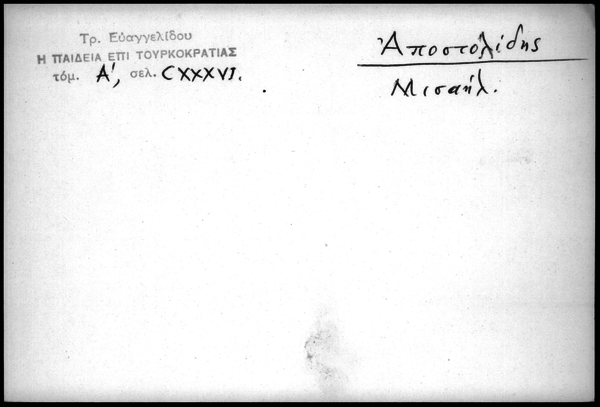 Τρ. Εὐαγγελίδου
Η ΠΑΙΔΕΙΑ ΕΠΙ ΤΟΥΡΚΟΚΡΑΤΙΑΣ
τόμ. Α', σελ. CXXXVI.
Ἀποστολίδης
Μισαήλ.